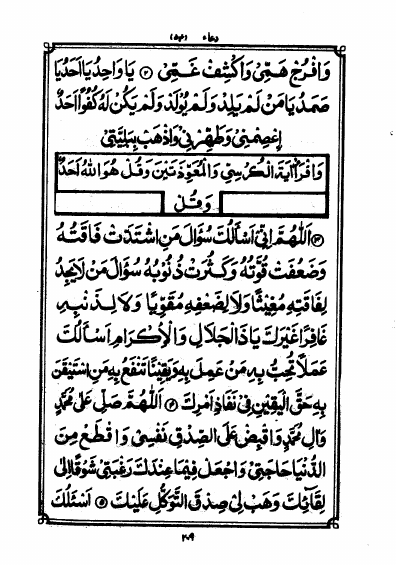 دعاء (۵۴)
وَافْرُجْ هَمِّيْ وَاكْشِفْ غَمِّيْ ② يَا وَاحِدُ يَا اَحَدُ يَا
صَمَدُ يَا مَنْ لَمْ يَلِدْ وَلَمْ يُوْلَدْ وَلَمْ يَكُنْ لَهٗ كُفُوًا اَحَدٌ
اِعْصِمْنِيْ وَطَهِّرْنِيْ وَاذْهَبْ بِبَلِيَّتِيْ
وَاقْرَأْ اٰيَةَ الْكُرْسِيِّ وَالْمُعَوِّذَتَيْنِ وَقُلْ هُوَ اللهُ اَحَدٌ
وَقُلْ
③ اَللّٰهُمَّ اِنِّيْ اَسْأَلُكَ سُؤَالَ مَنِ اشْتَدَّتْ فَاقَتُهُ
وَضَعُفَتْ قُوَّتُهُ وَكَثُرَتْ ذُنُوْبُهُ سُؤَالَ مَنْ لَا يَجِدُ
لِفَاقَتِهِ مُغِيْثًا وَلَا لِضَعْفِهِ مُقَوِّيًا وَلَا لِذَنْبِهِ
غَافِرًا غَيْرَكَ يَا ذَا الْجَلَالِ وَالْاِكْرَامِ اَسْأَلُكَ
عَمَلًا تُحِبُّ بِهِ مَنْ عَمِلَ بِهِ وَيَقِيْنًا تَنْفَعُ بِهِ مَنِ اسْتَيْقَنَ
بِهِ حَقَّ الْيَقِيْنِ فِيْ نَفَاذِ اَمْرِكَ ④ اَللّٰهُمَّ صَلِّ عَلٰى مُحَمَّدٍ
وَاٰلِ مُحَمَّدٍ وَاقْبِضْ عَلَى الصِّدْقِ نَفْسِيْ وَاقْطَعْ مِنَ
الدُّنْيَا حَاجَتِيْ وَاجْعَلْ فِيْمَا عِنْدَكَ رَغْبَتِيْ شَوْقًا اِلٰى
لِقَائِكَ وَهَبْ لِيْ صِدْقَ التَّوَكُّلِ عَلَيْكَ ⑤ اَسْئَلُكَ
۲۰۹